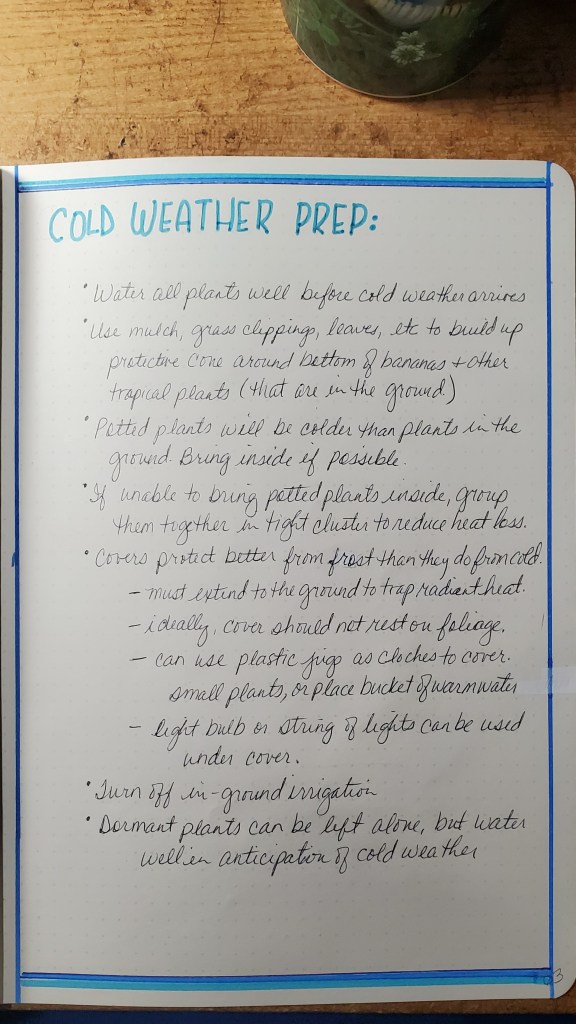 COLD WEATHER PREP:
• Water all plants well before cold weather arrives
• Use mulch, grass clippings, leaves, etc to build up
protective cone around bottom of bananas + other
tropical plants (that are in the ground.)
• Potted plants will be colder than plants in the
ground. Bring inside if possible.
• If unable to bring potted plants inside, group
them together in tight cluster to reduce heat loss.
• Covers protect better from frost than they do from cold.
– must extend to the ground to trap radiant heat.
– ideally, cover should not rest on foliage.
– can use plastic jugs as cloches to cover.
small plants, or place bucket of warm water
– light bulb or string of lights can be used
under cover.
• Turn off in-ground irrigation
• Dormant plants can be left alone, but water
well in anticipation of cold weather